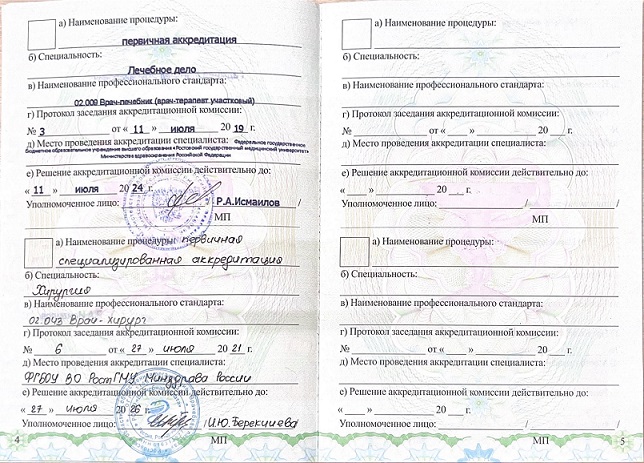 а) Наименование процедуры:
первичная аккредитация
б) Специальность:
Лечебное дело
в) Наименование профессионального стандарта:
02.009 Врач-лечебник (врач-терапевт участковый)
г) Протокол заседания аккредитационной комиссии:
№ 3 от « 11 » июля 20 19 г.
д) Место проведения аккредитации специалиста: Федеральное государственное
бюджетное образовательное учреждение высшего образования «Ростовский государственный медицинский университет»
Министерства здравоохранения Российской Федерации
е) Решение аккредитационной комиссии действительно до:
« 11 » июля 20 24 г.
Уполномоченное лицо: / Р.А.Исмаилов
МП
а) Наименование процедуры: первичная
специализированная аккредитация
б) Специальность:
Хирургия
в) Наименование профессионального стандарта:
02.043 Врач-хирург
г) Протокол заседания аккредитационной комиссии:
№ 6 от « 27 » июля 20 21 г.
д) Место проведения аккредитации специалиста:
ФГБОУ ВО РостГМУ Минздрава России
е) Решение аккредитационной комиссии действительно до:
« 27 » июля 20 26 г.
Уполномоченное лицо: / И.Ю.Берекчиева
4 МП
а) Наименование процедуры:
б) Специальность:
в) Наименование профессионального стандарта:
г) Протокол заседания аккредитационной комиссии:
№ от « » 20 г.
д) Место проведения аккредитации специалиста:
е) Решение аккредитационной комиссии действительно до:
« » 20 г.
Уполномоченное лицо: / /
МП
а) Наименование процедуры:
б) Специальность:
в) Наименование профессионального стандарта:
г) Протокол заседания аккредитационной комиссии:
№ от « » 20 г.
д) Место проведения аккредитации специалиста:
е) Решение аккредитационной комиссии действительно до:
« » 20 г.
Уполномоченное лицо: / /
МП 5